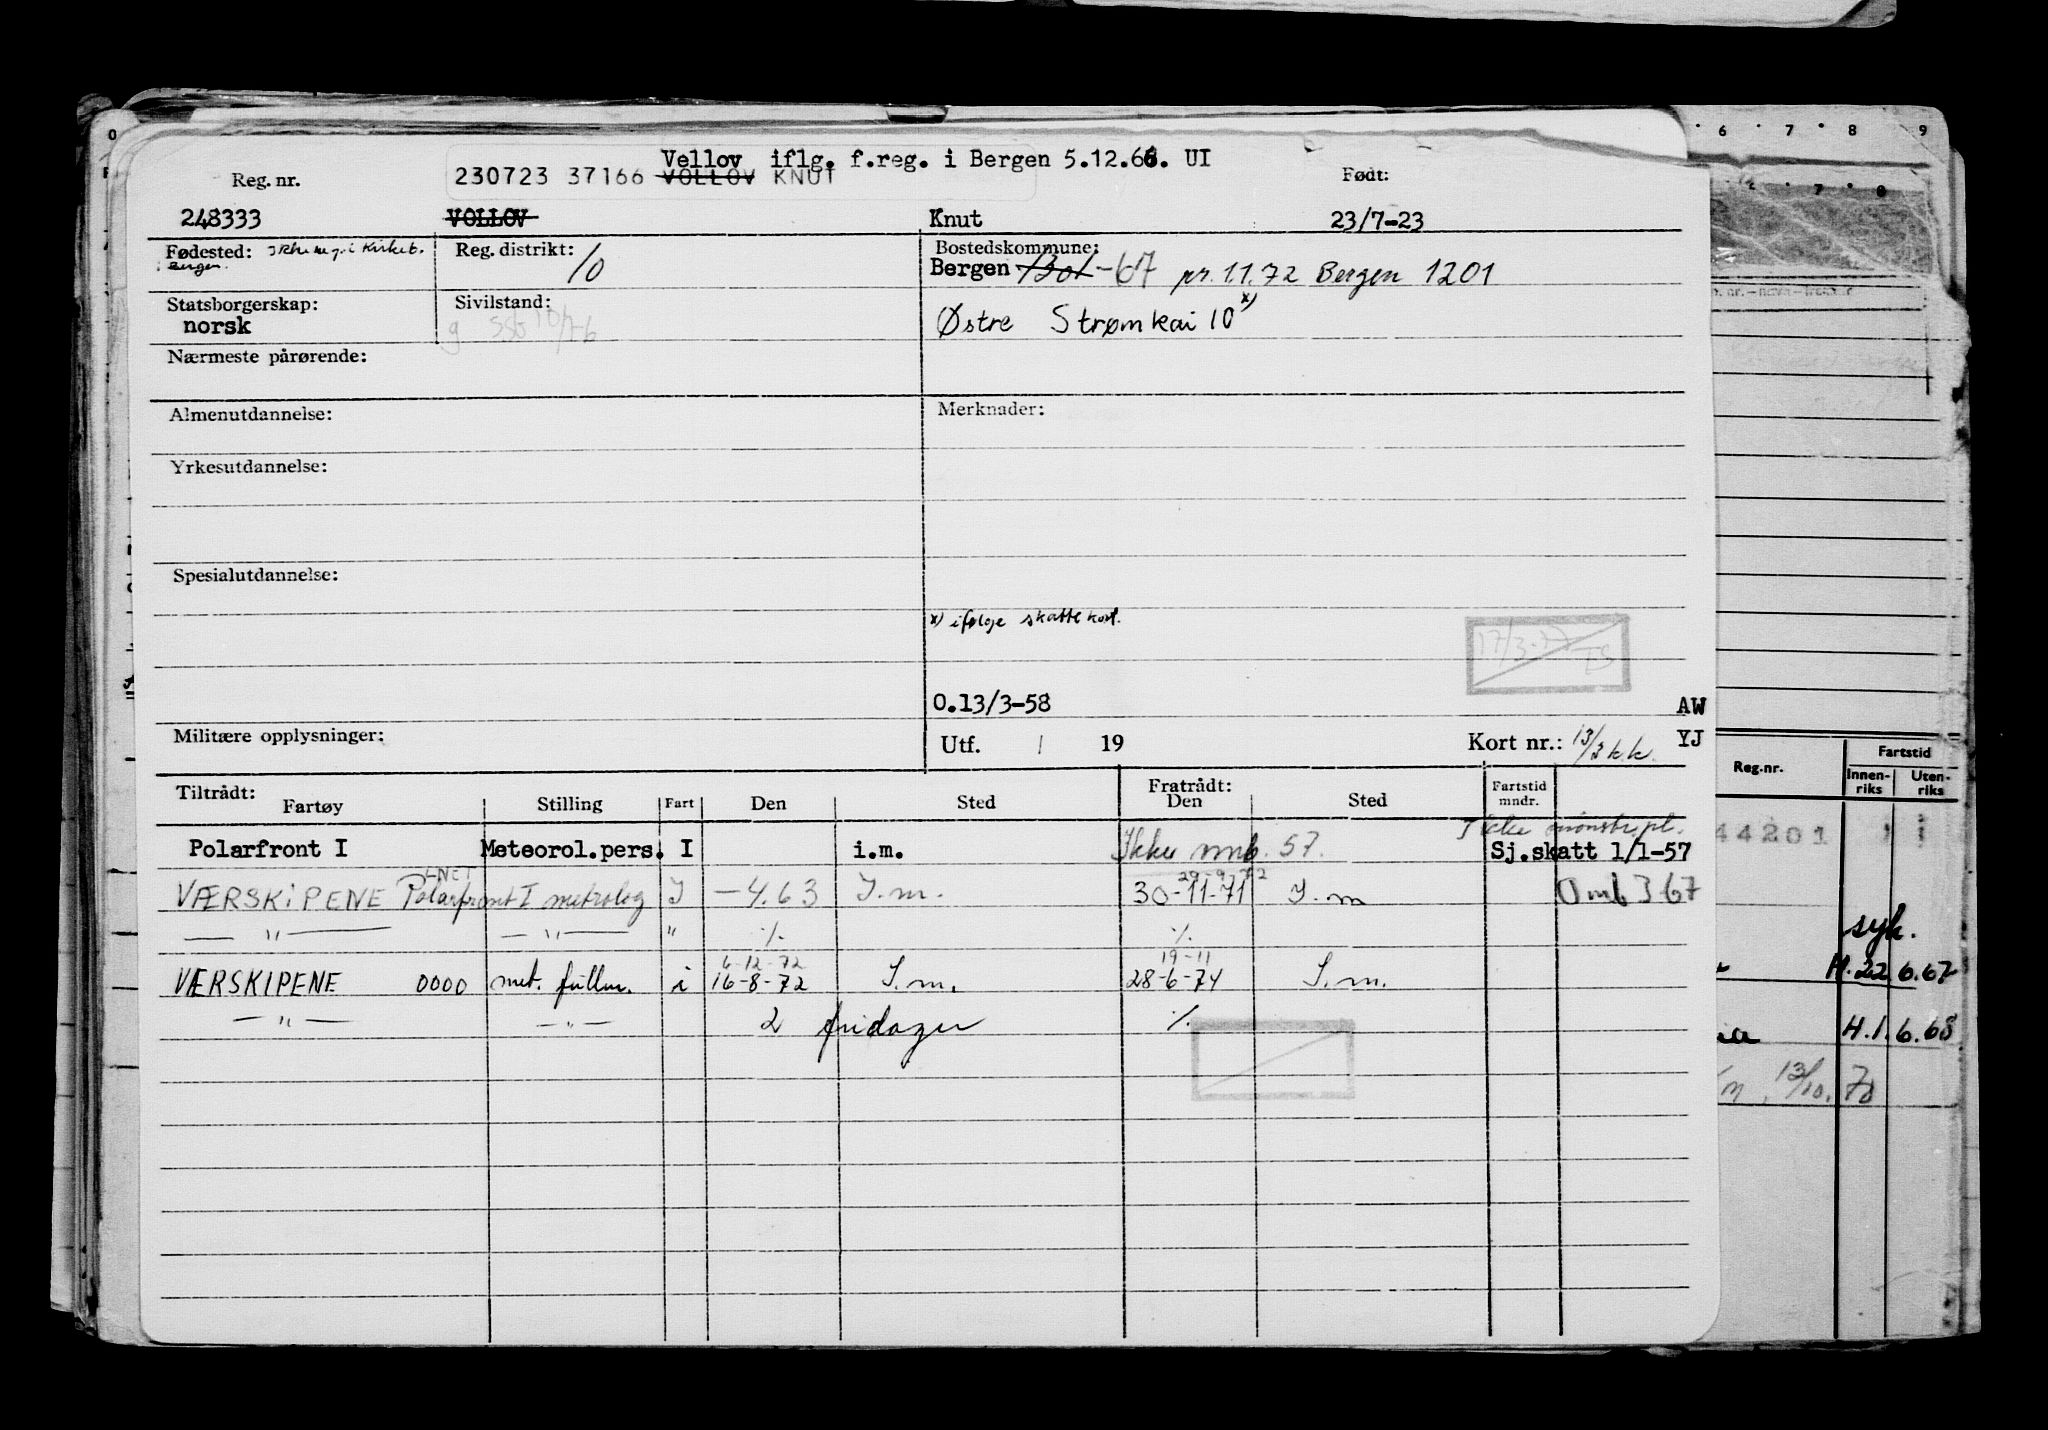 Vellov iflg. f.reg. i Bergen 5.12.66. UI
Reg. nr. 230723 37166 VOLLOV KNUT Født:
248333 VOLLOV Knut 23/7-23
Fødested: Bergen.
Reg. distrikt: 10
Bostedskommune:
Bergen -67 pr. 1.1.72 Bergen 1201
Statsborgerskap:
norsk
Sivilstand:
g
Østre Strømkai 10 x)
Nærmeste pårørende:
Almenutdannelse:
Merknader:
Yrkesutdannelse:
Spesialutdannelse:
x) ifølge skattekort.
17/3-77
0.13/3-58
AW
Militære opplysninger:
Utf. / 19
Kort nr.: 13/3 k.k.
YJ
Tiltrådt: Fratrådt: Fartstid mndr.
Fartøy Stilling Fart Den Sted Den Sted
Ikke mønstr.pl.
Polarfront I Meteorol.pers. I i.m. Ikke mmb. 57. Sj.skatt 1/1-57
29-9-72
VÆRSKIPENE Polarfront I metrolog I -4.63 I.m. 30-11-71 I.m Omb 3 67
— " — — " — " ·/. ·/.
6-12-72 19-11
VÆRSKIPENE 0000 met. fullm. i 16-8-72 I.m. 28-6-74 I.m.
— " — — " — 2 fridager ·/.
6 7 8 9
Reg.nr.
Fartstid
Innen-riks
Uten-riks
44201
syk.
H. 22 6.67
H.1.6.68
13/10.70